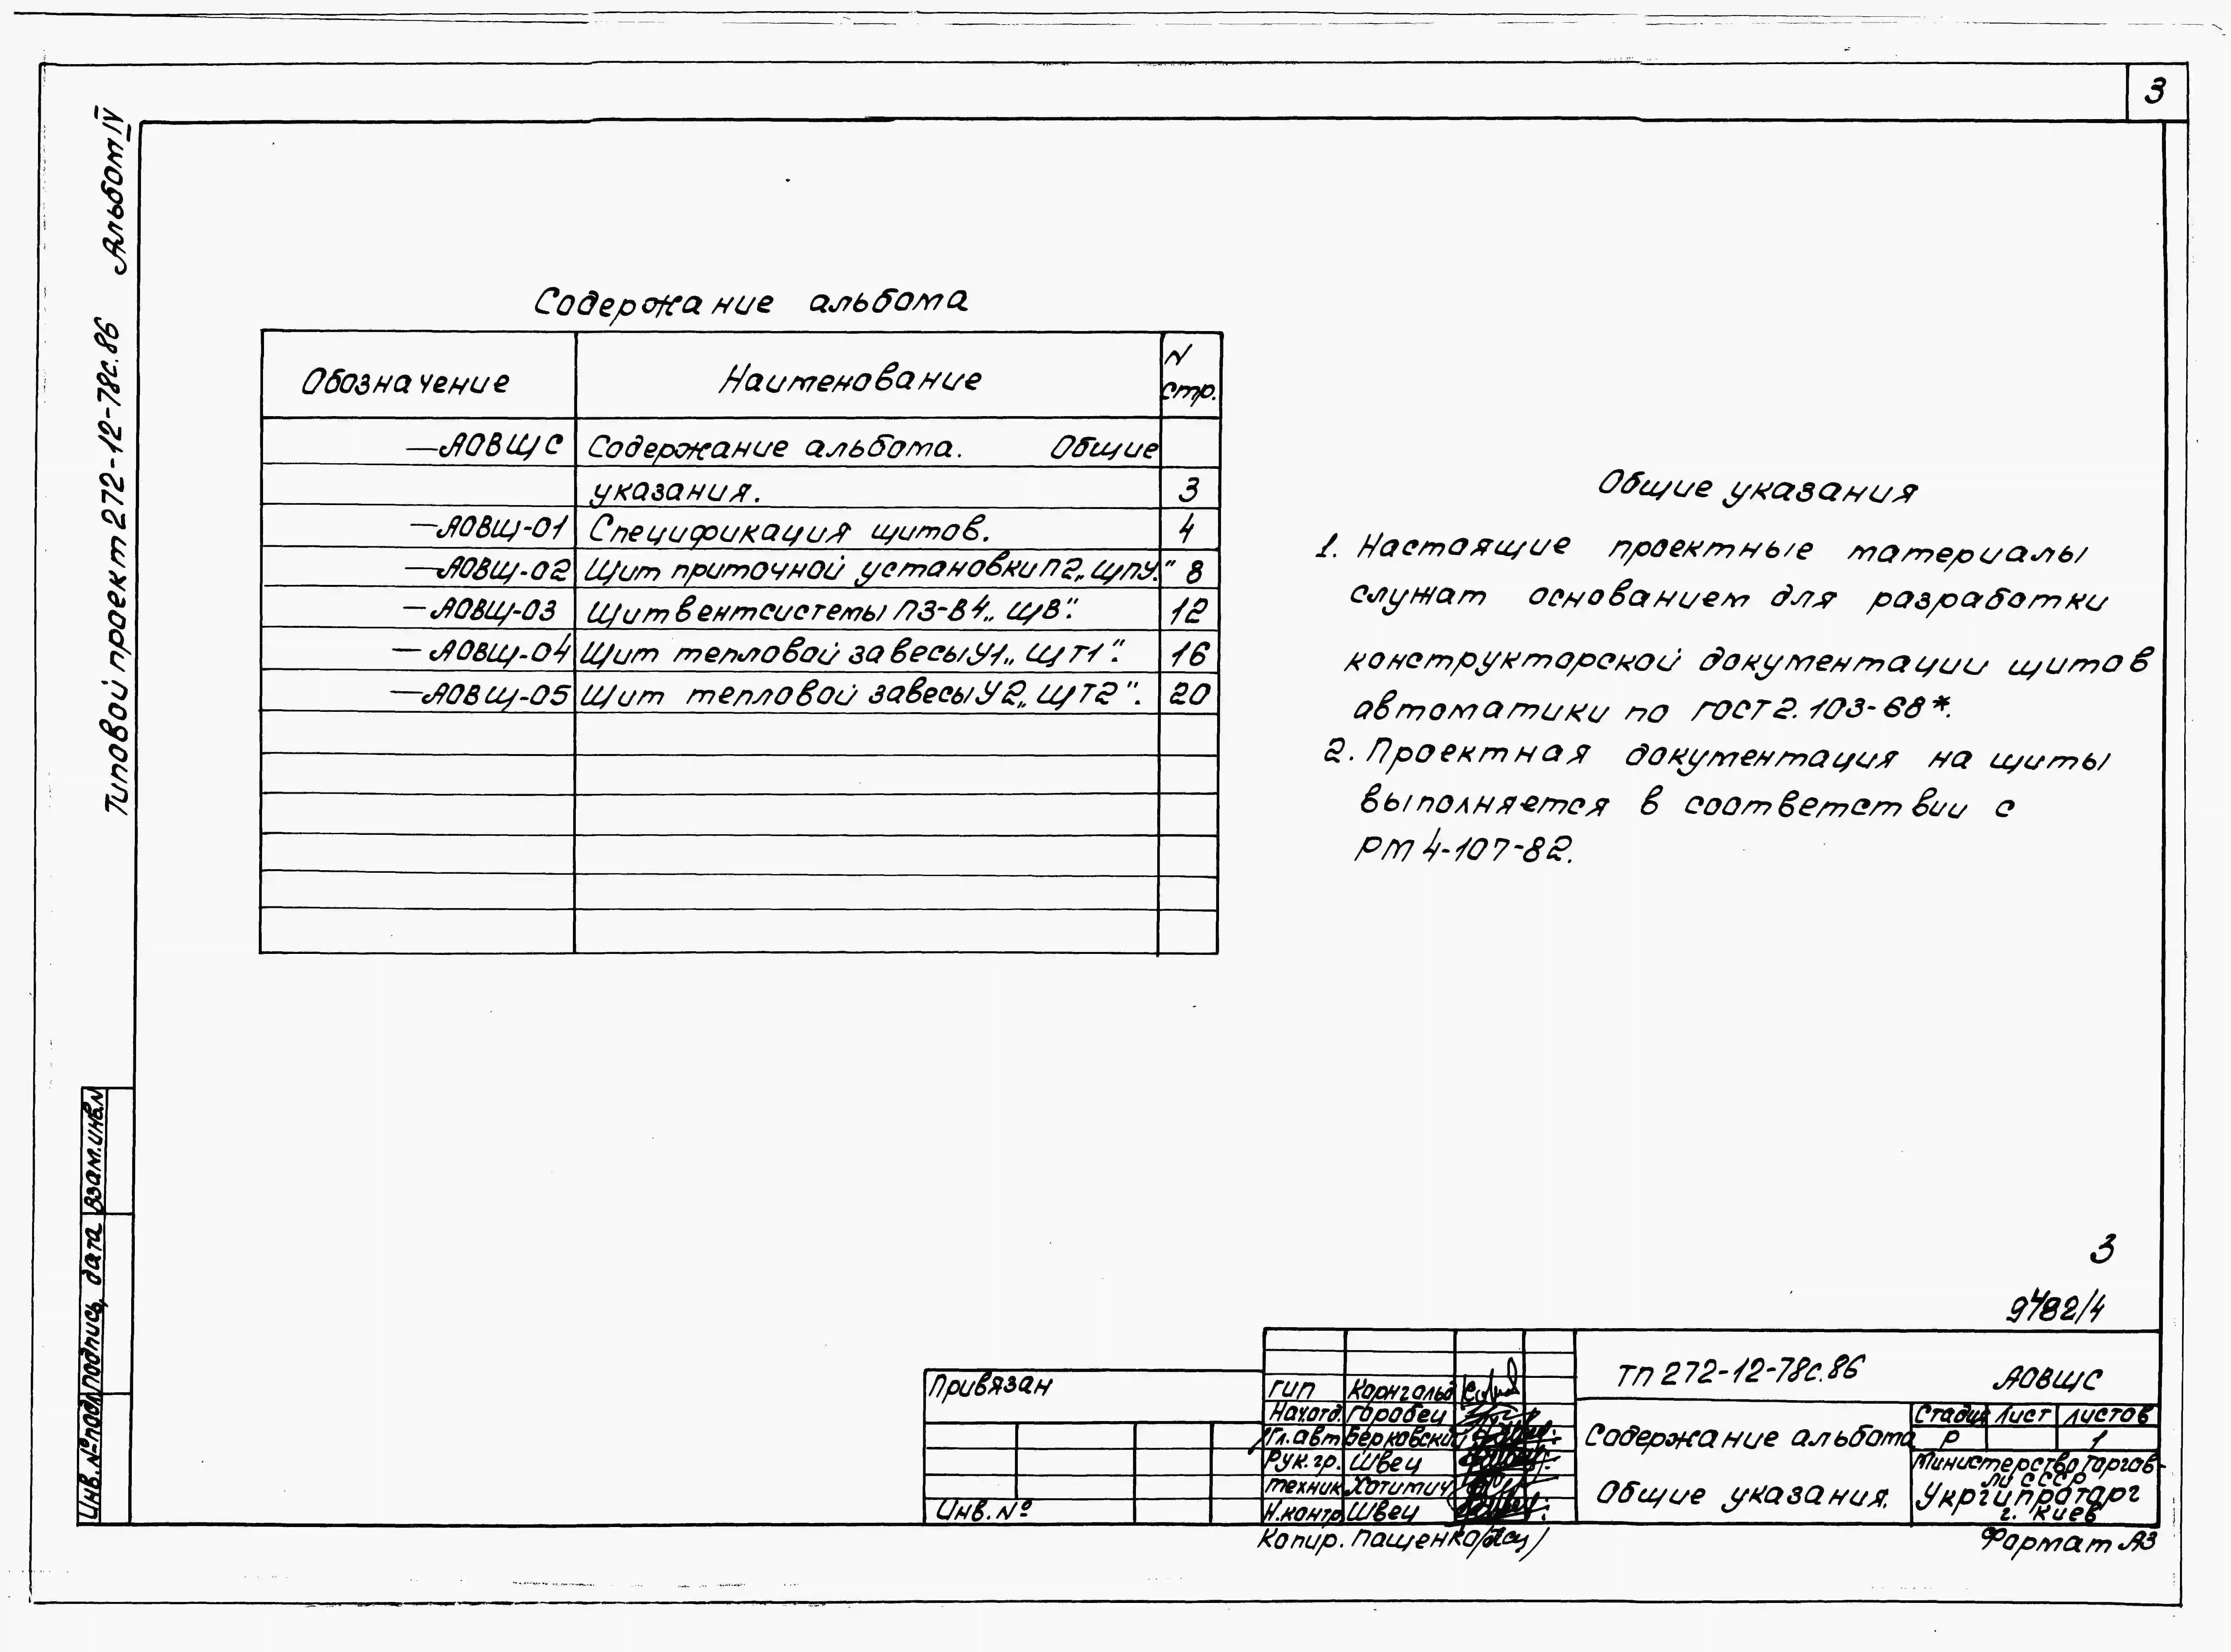 3
Типовой проект 272-12-78с.86 Альбом IV
Содержание альбома
Обозначение Наименование N стр.
—АОВЩС Содержание альбома. Общие
указания. 3
—АОВЩ-01 Спецификация щитов. 4
—АОВЩ-02 Щит приточной установки П2„ЩПУ." 8
—АОВЩ-03 Щит вентсистемы П3-В4„ЩВ". 12
—АОВЩ-04 Щит тепловой завесы У1„ЩТ1". 16
—АОВЩ-05 Щит тепловой завесы У2„ЩТ2". 20
Общие указания
1. Настоящие проектные материалы
служат основанием для разработки
конструкторской документации щитов
автоматики по ГОСТ 2.103-68*.
2. Проектная документация на щиты
выполняется в соответствии с
РМ 4-107-82.
Взам.инв.N
Подпись, дата
Инв.№подл
3
9482/4
Привязан
Инв.№
ГИП Корнгольд
Нач.отд. Горобец
Гл.авт. Берковский
Рук.гр. Швец
техник Хотимич
Н.контр. Швец
ТП 272-12-78с.86 АОВЩС
Содержание альбома
Общие указания.
Стадия Лист Листов
Р 1
Министерство торгов-
ли СССР
Укргипроторг
г. Киев
Копир. Пащенко
Формат А3